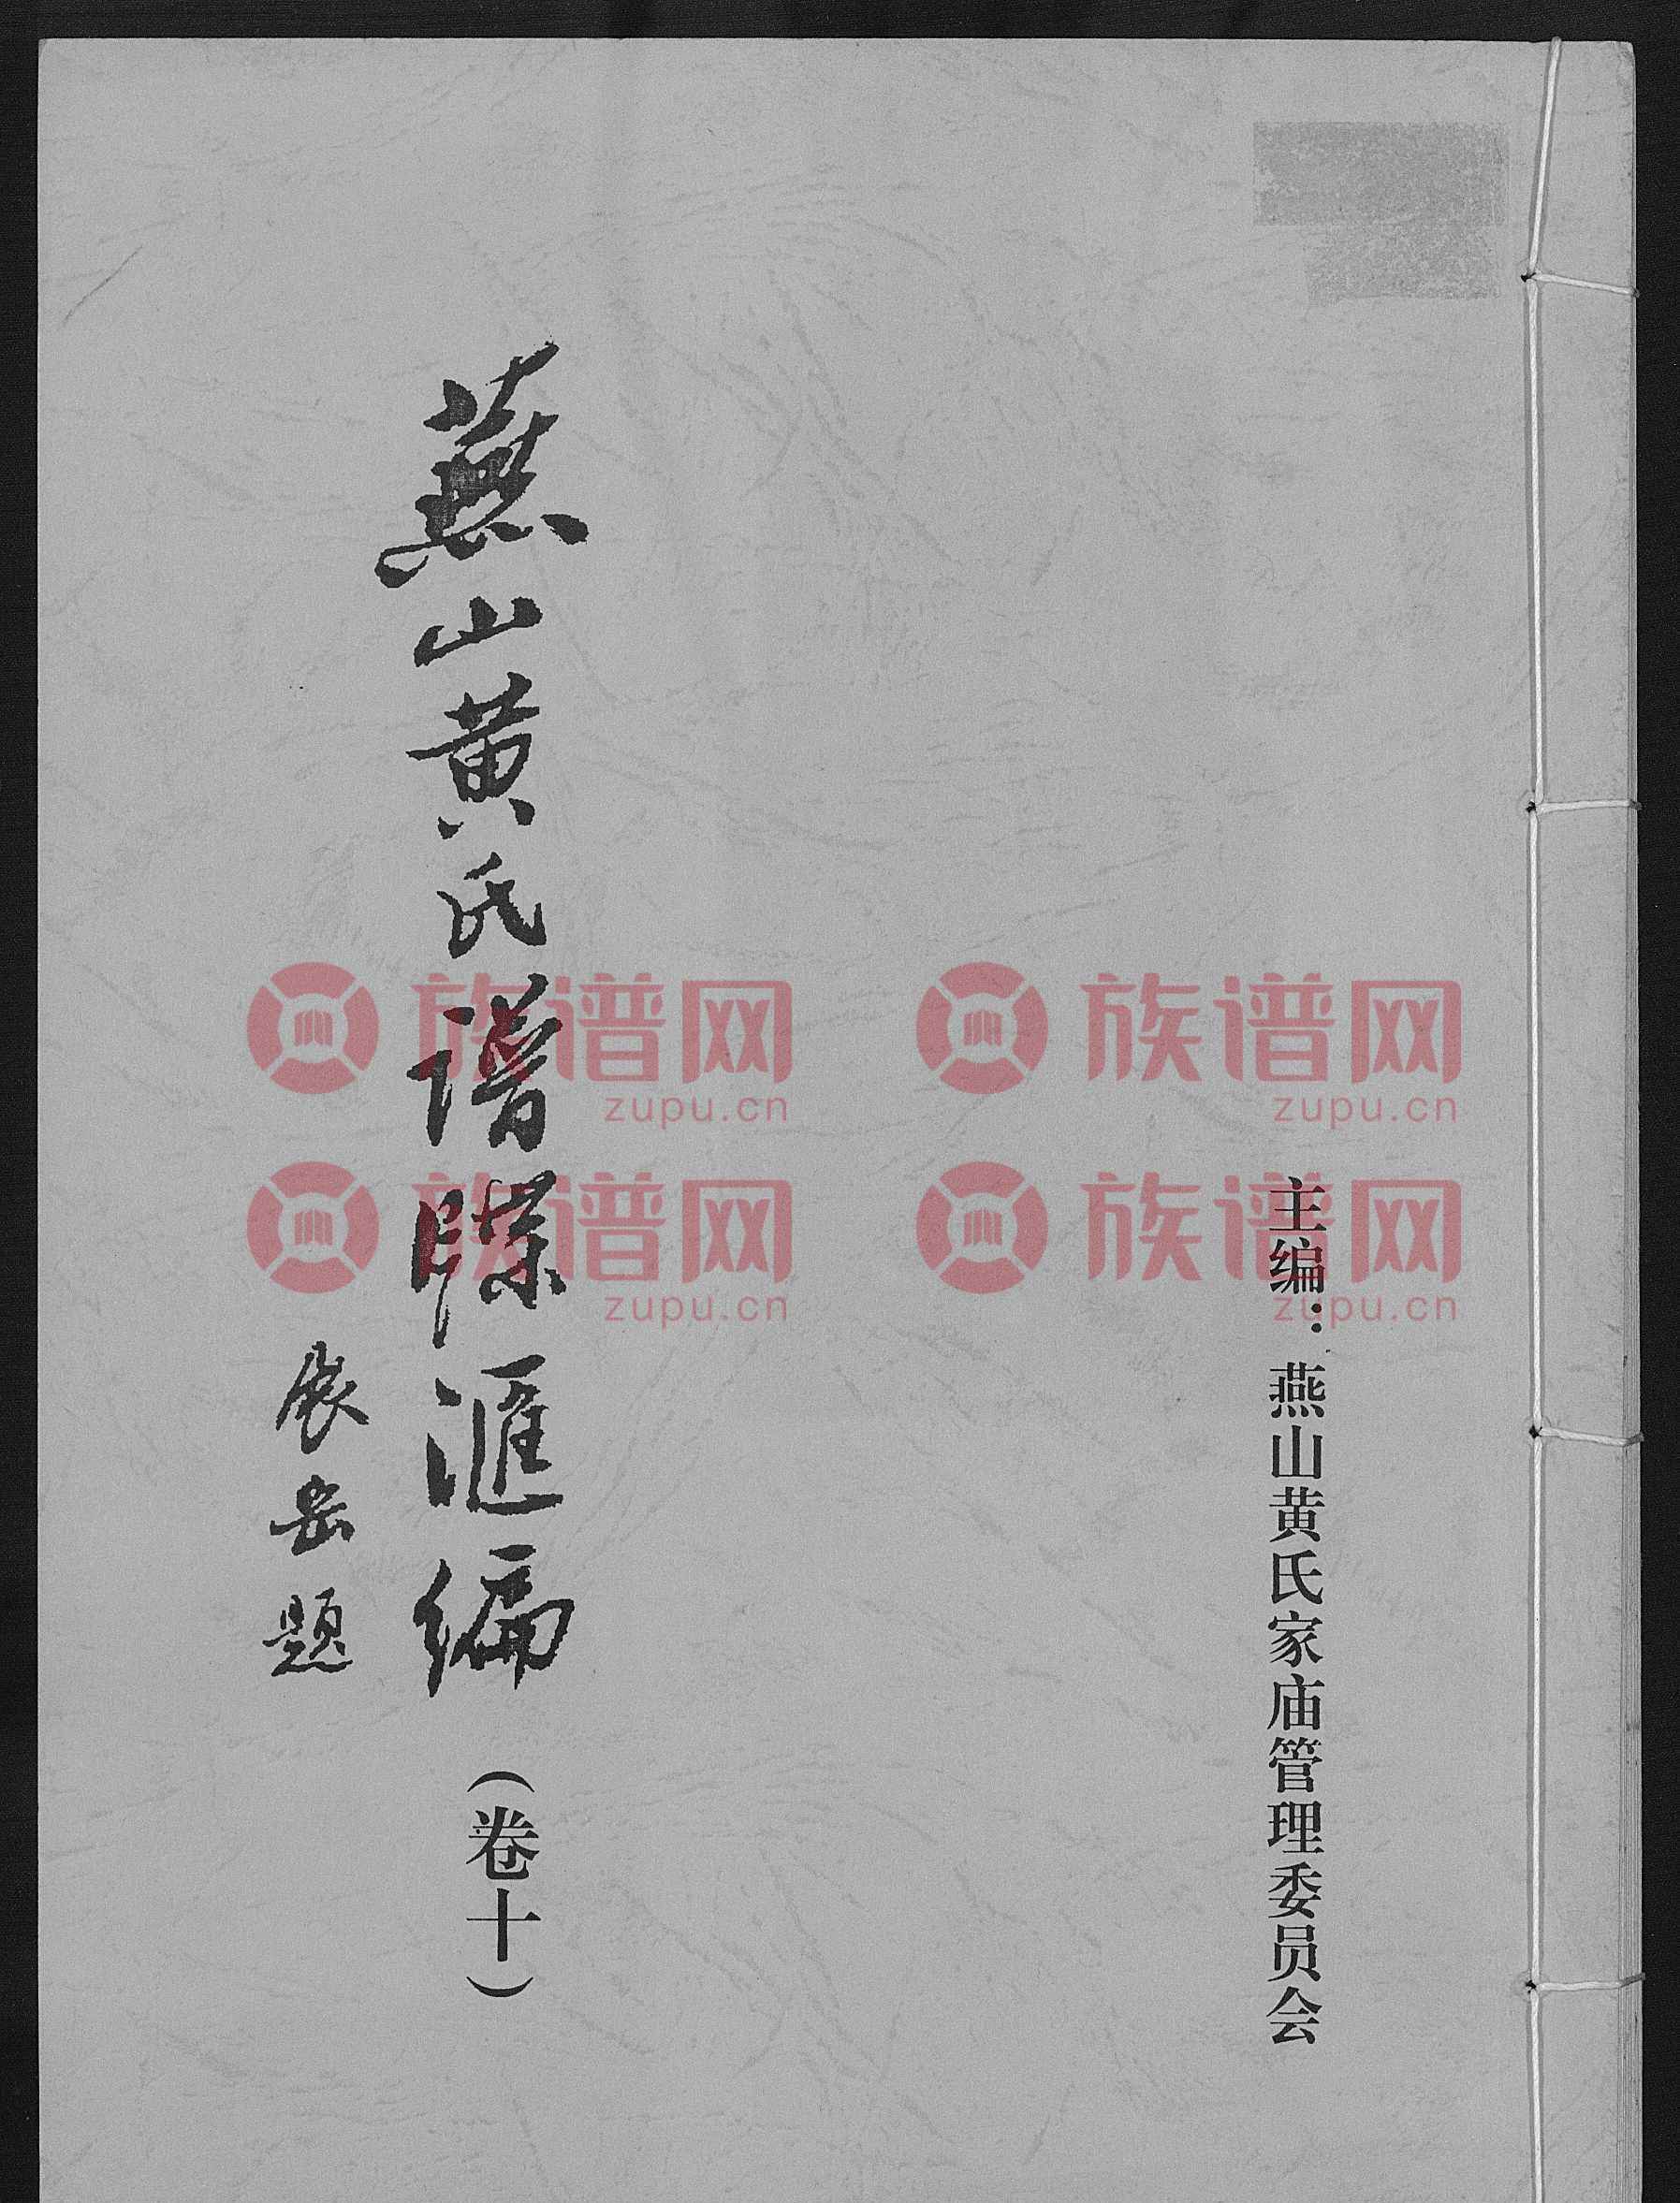 主编：燕山黄氏家庙管理委员会
燕山黄氏譜牒滙編
（卷十）
展岳题
族谱网
zupu.cn
族谱网
zupu.cn
族谱网
zupu.cn
族谱网
zupu.cn